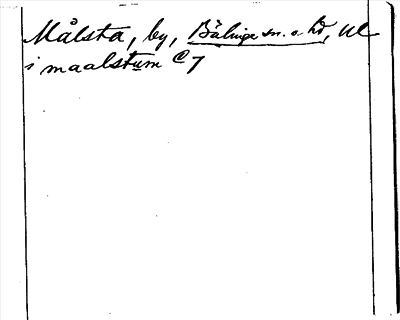 Målsta, by, Bälinge sn. o. hd, Ul
i maalstum @ 7